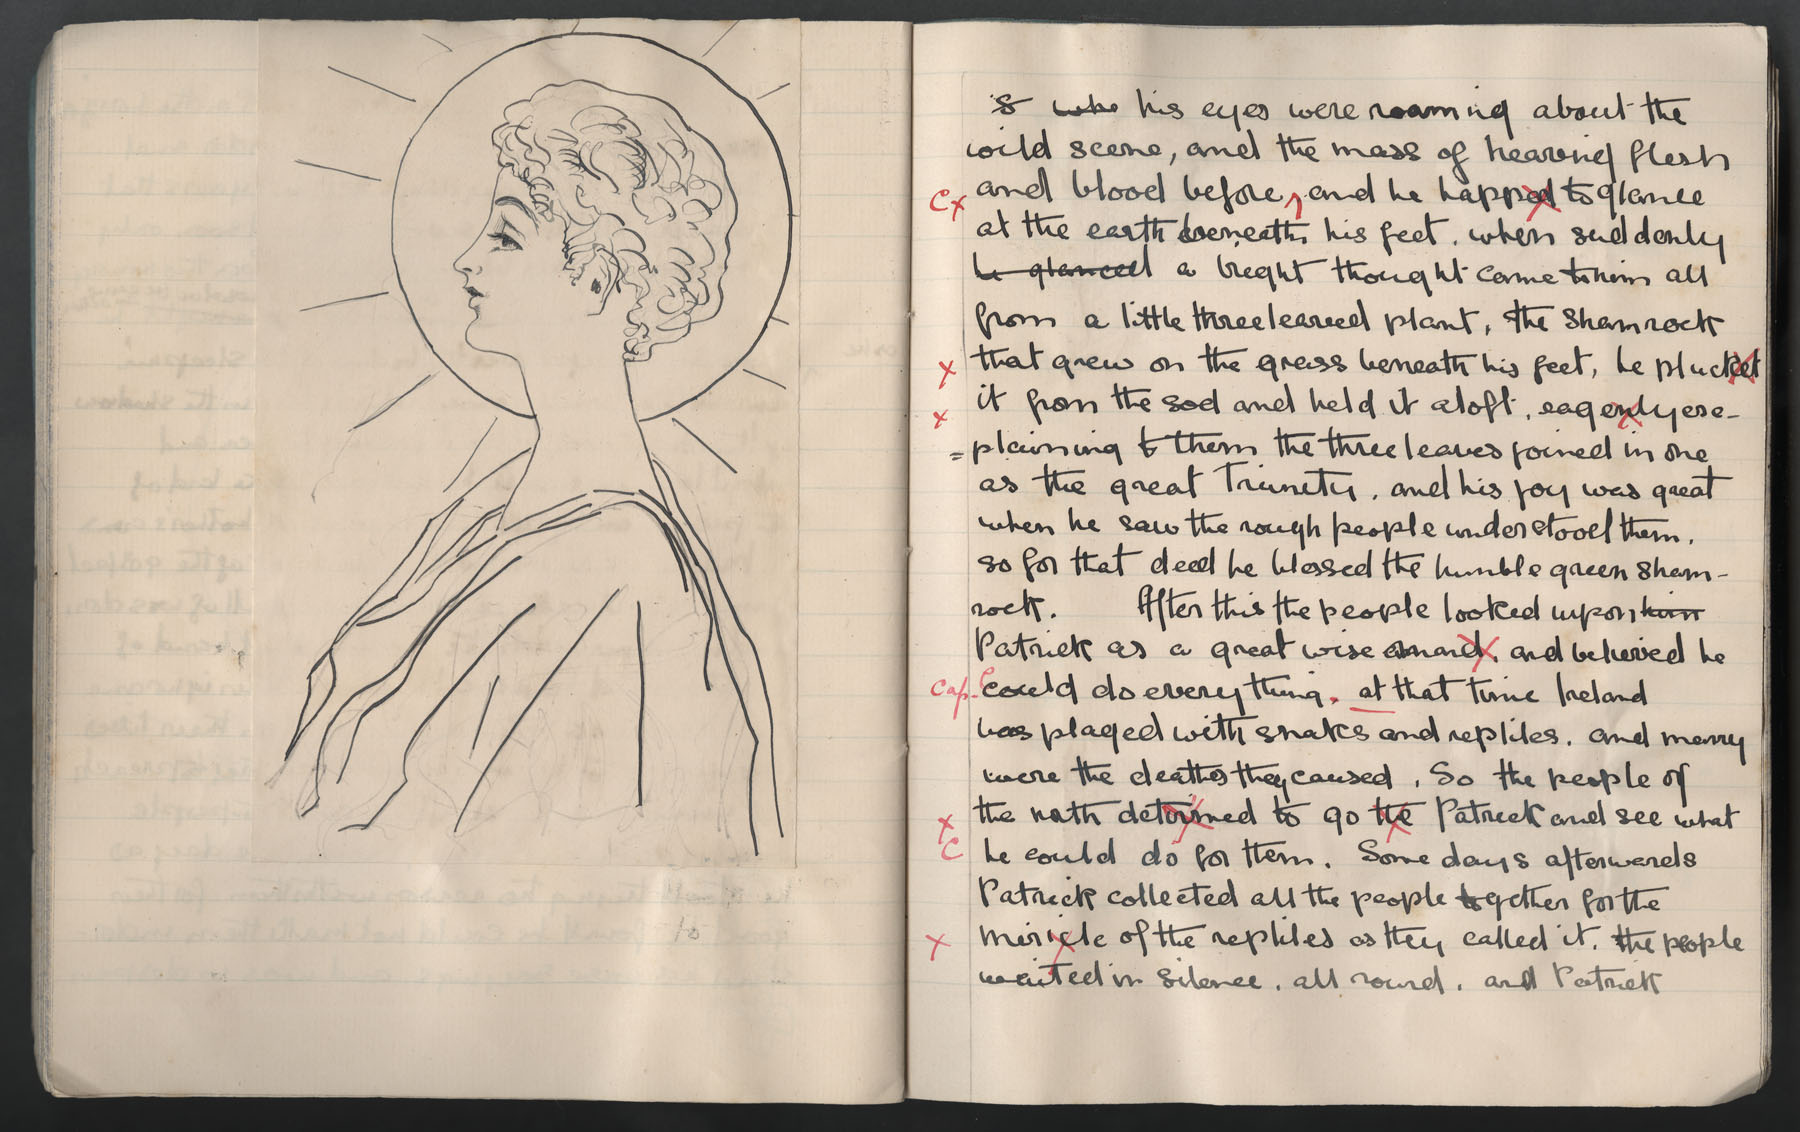 is who his eyes were roaming about the
wild scene, and the mass of heaving flesh
C x and blood before, and he happed to glance
at the earth beneath his feet. when suddenly
he glanced a bright thought came to him all
from a little threeleaved plant, the shamrock
x that grew on the grass beneath his feet, he plucket
x it from the sod and held it aloft. eagerly exe-
=plaining to them the three leaves joined in one
as the great Trinety, and his joy was great
when he saw the rough people understood them.
so for that deed he blessed the humble green sham-
rock. After this the people looked upon him
Patrick as a great wise and, and believed he
cap. could do everything. at that time Ireland
was plaged with snakes and reptiles. and many
were the deaths they caused. So the people of
x the north detormed to go the Patrick and see what
C he could do for them. Some days afterwards
Patrick collected all the people together for the
x miricle of the reptiles as they called it. the people
waited in silence. all round. and Patrick